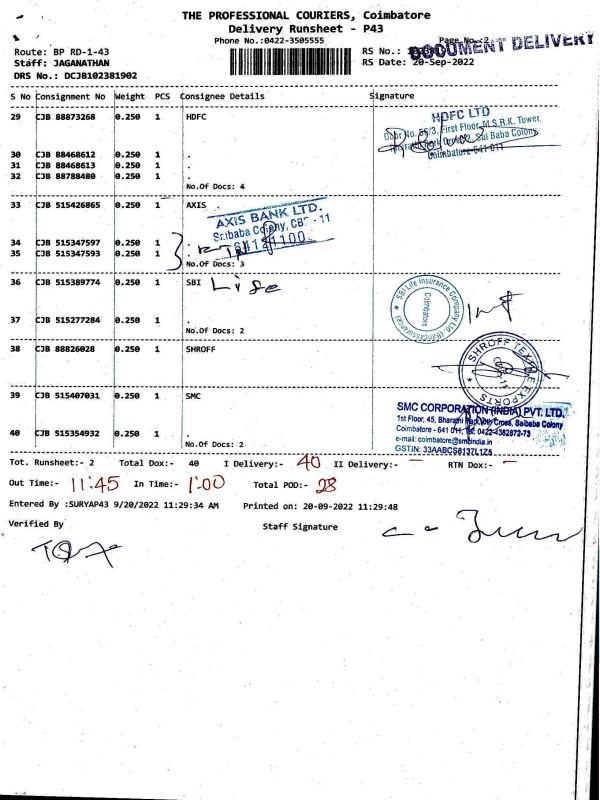 THE PROFESSIONAL COURIERS, Coimbatore
Delivery Runsheet - P43
Phone No.:0422-3505555
Page No.:2
DOCUMENT DELIVERY
Route: BP RD-1-43
RS No.:
Staff: JAGANATHAN
RS Date: 20-Sep-2022
DRS No.: DCJB102381902
S No Consignment No Weight PCS Consignee Details Signature
29 CJB 88873268 0.250 1 HDFC
HDFC LTD
First Floor, M.S.R.K. Tower,
Sai Baba Colony,
Coimbatore-641 011
30 CJB 88468612 0.250 1 .
31 CJB 88468613 0.250 1 .
32 CJB 88788480 0.250 1 .
No.Of Docs: 4
33 CJB 515426865 0.250 1 AXIS .
AXIS BANK LTD.
Saibaba Colony, CBE - 11
34 CJB 515347597 0.250 1 .
35 CJB 515347593 0.250 1
No.Of Docs: 3
36 CJB 515389774 0.250 1 SBI Life
SBI Life Insurance Company Ltd.
Coimbatore
37 CJB 515277284 0.250 1 .
No.Of Docs: 2
38 CJB 88826028 0.250 1 SHROFF
SHROFF TEXTILE EXPORTS
39 CJB 515407031 0.250 1 SMC
SMC CORPORATION (INDIA) PVT. LTD.
1st Floor, 45, Bharathi Park Cross, Saibaba Colony
Coimbatore - 641 011, Tel: 0422-4382872-73
e-mail: coimbatore@smcindia.in
GSTIN: 33AABCS8137L1Z5
40 CJB 515354932 0.250 1 .
No.Of Docs: 2
Tot. Runsheet:- 2 Total Dox:- 40 I Delivery:- 40 II Delivery:- — RTN Dox:- —
Out Time:- 11:45 In Time:- 1:00 Total POD:- 28
Entered By :SURYAP43 9/20/2022 11:29:34 AM Printed on: 20-09-2022 11:29:48
Verified By Staff Signature